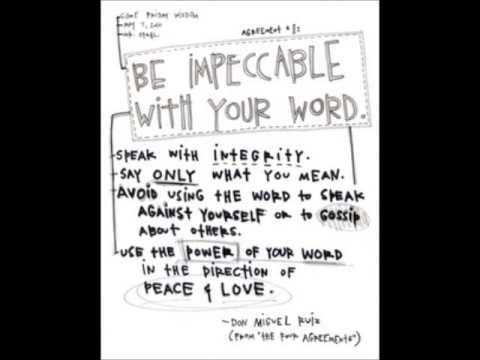 SOME FRIDAY WISDOM
MAY 7, 2010
AGREEMENT #1:
BE IMPECCABLE
WITH YOUR WORD.
SPEAK WITH INTEGRITY.
SAY ONLY WHAT YOU MEAN.
AVOID USING THE WORD TO SPEAK
AGAINST YOURSELF OR TO GOSSIP
ABOUT OTHERS.
USE THE POWER OF YOUR WORD
IN THE DIRECTION OF
PEACE & LOVE.
~DON MIGUEL RUIZ
(FROM "THE FOUR AGREEMENTS")